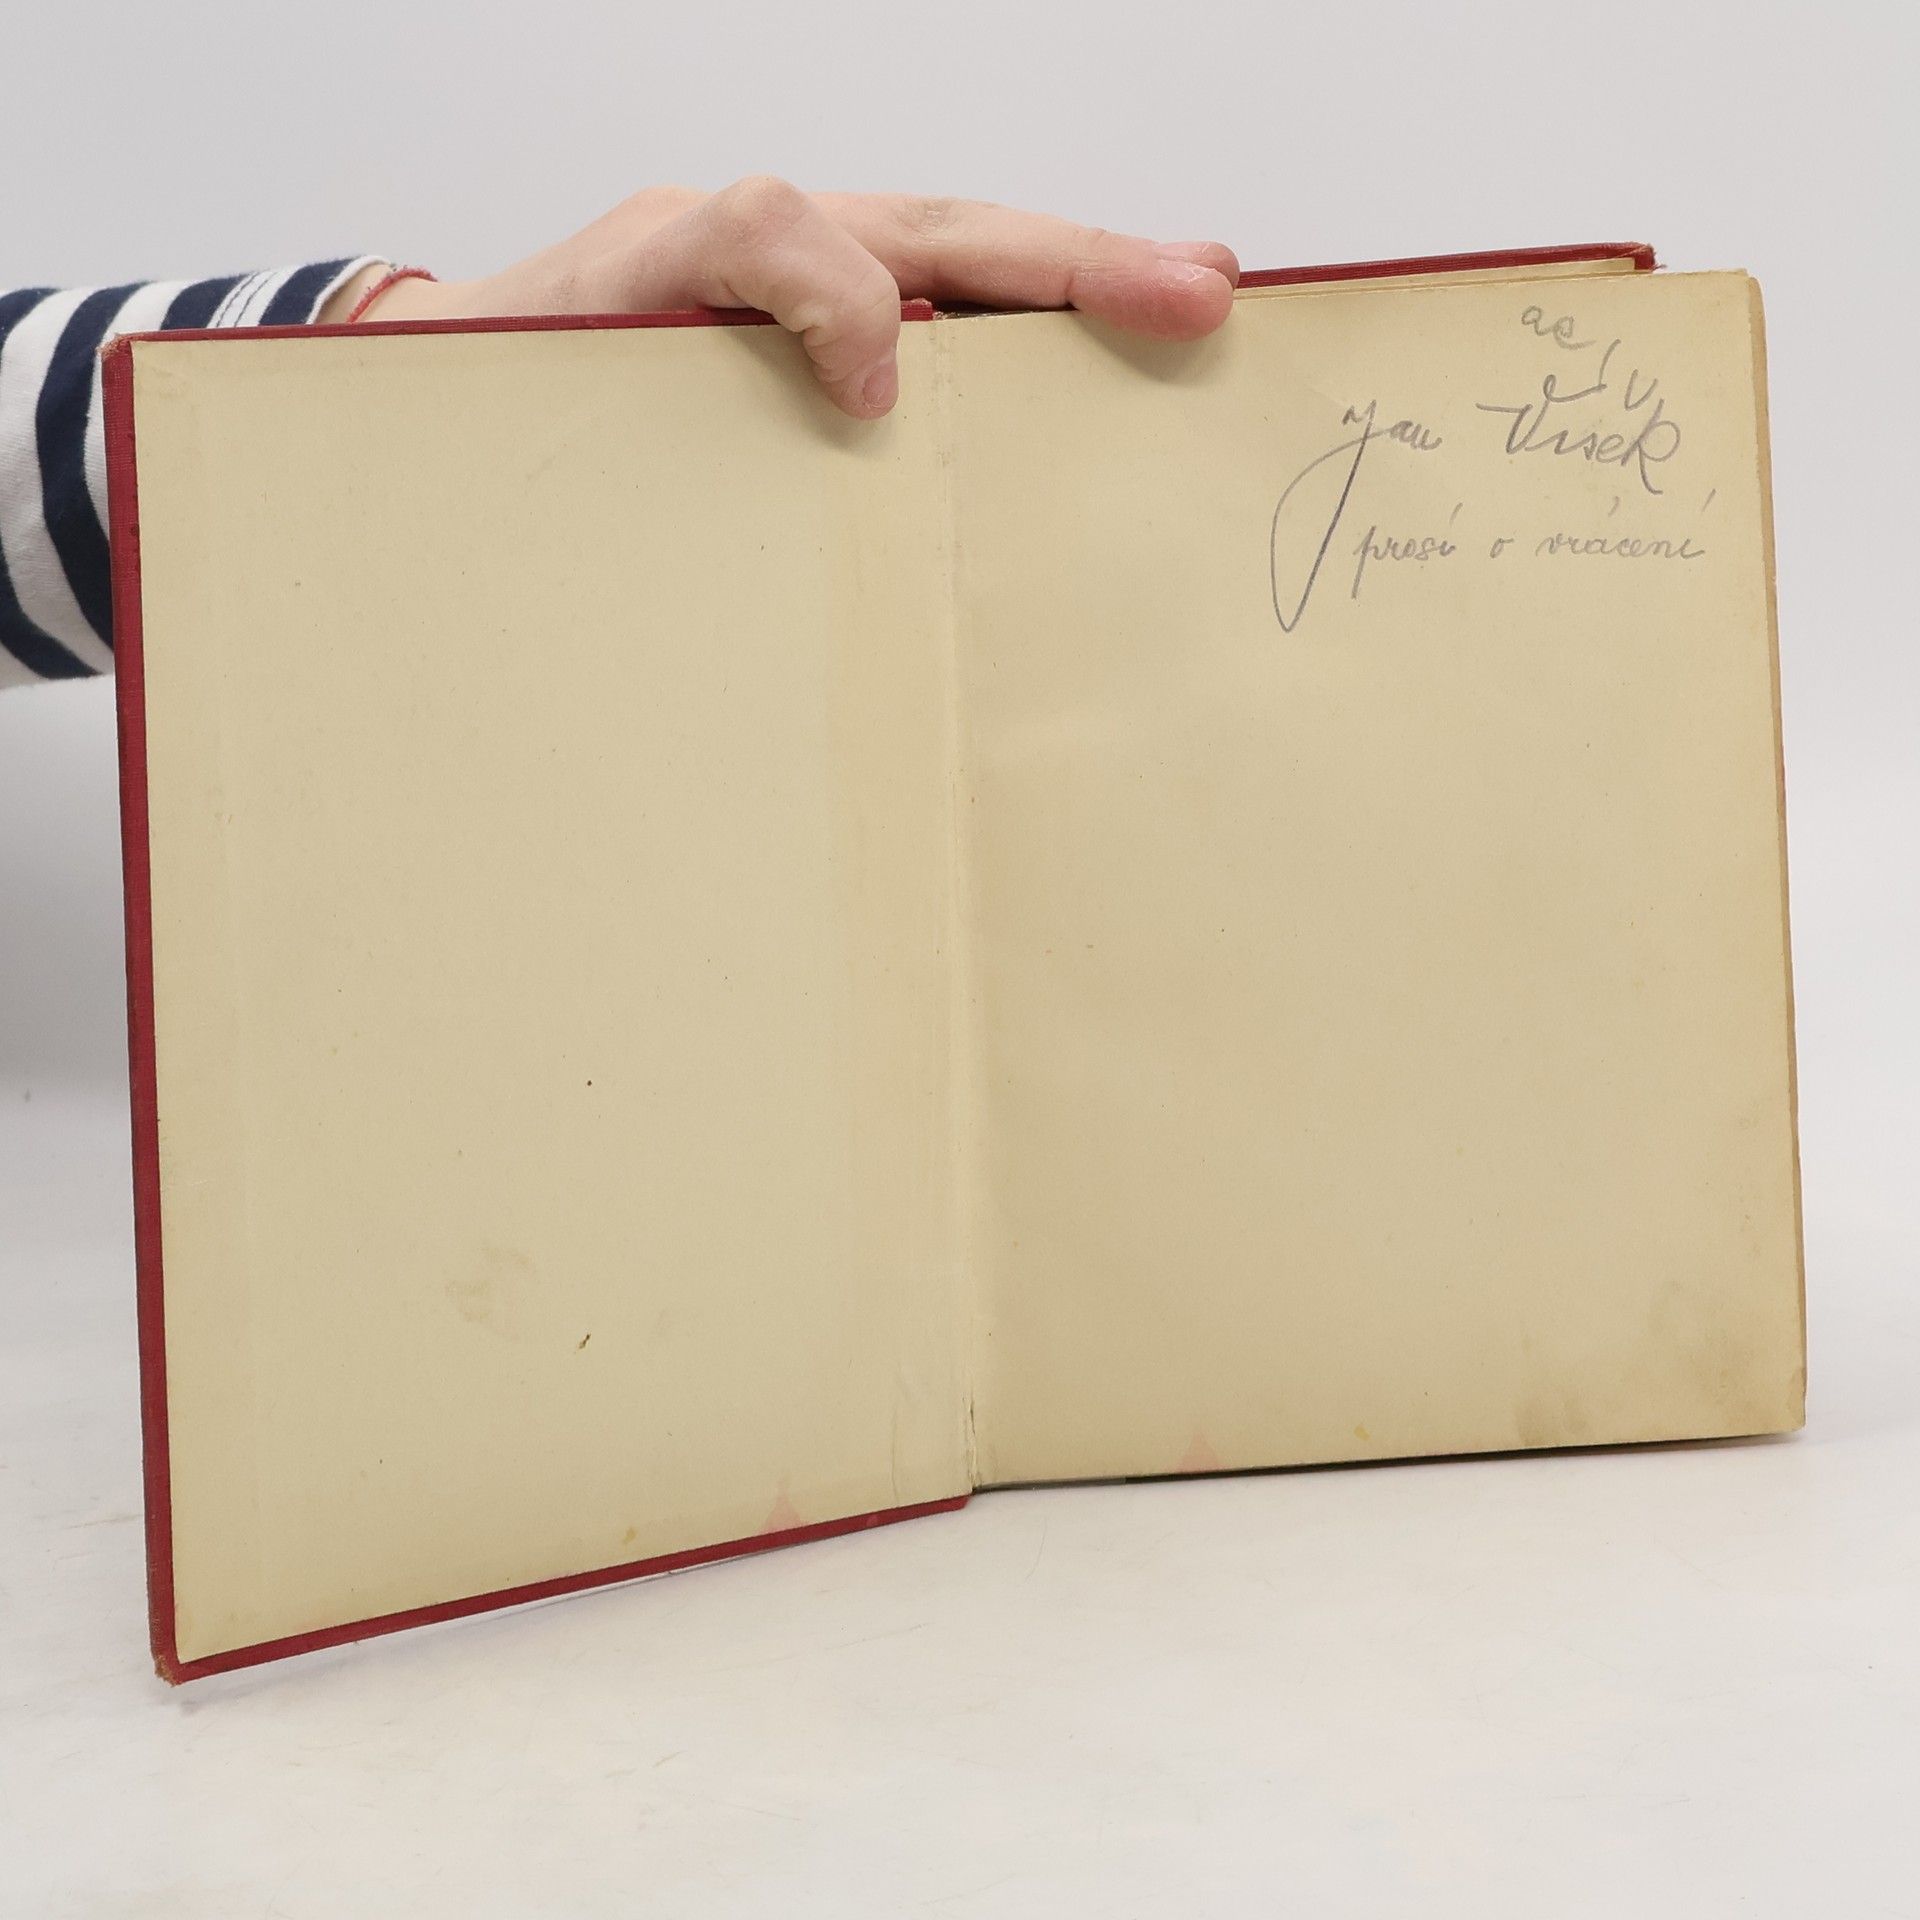 ac
Jan Víšek
prosí o vrácení